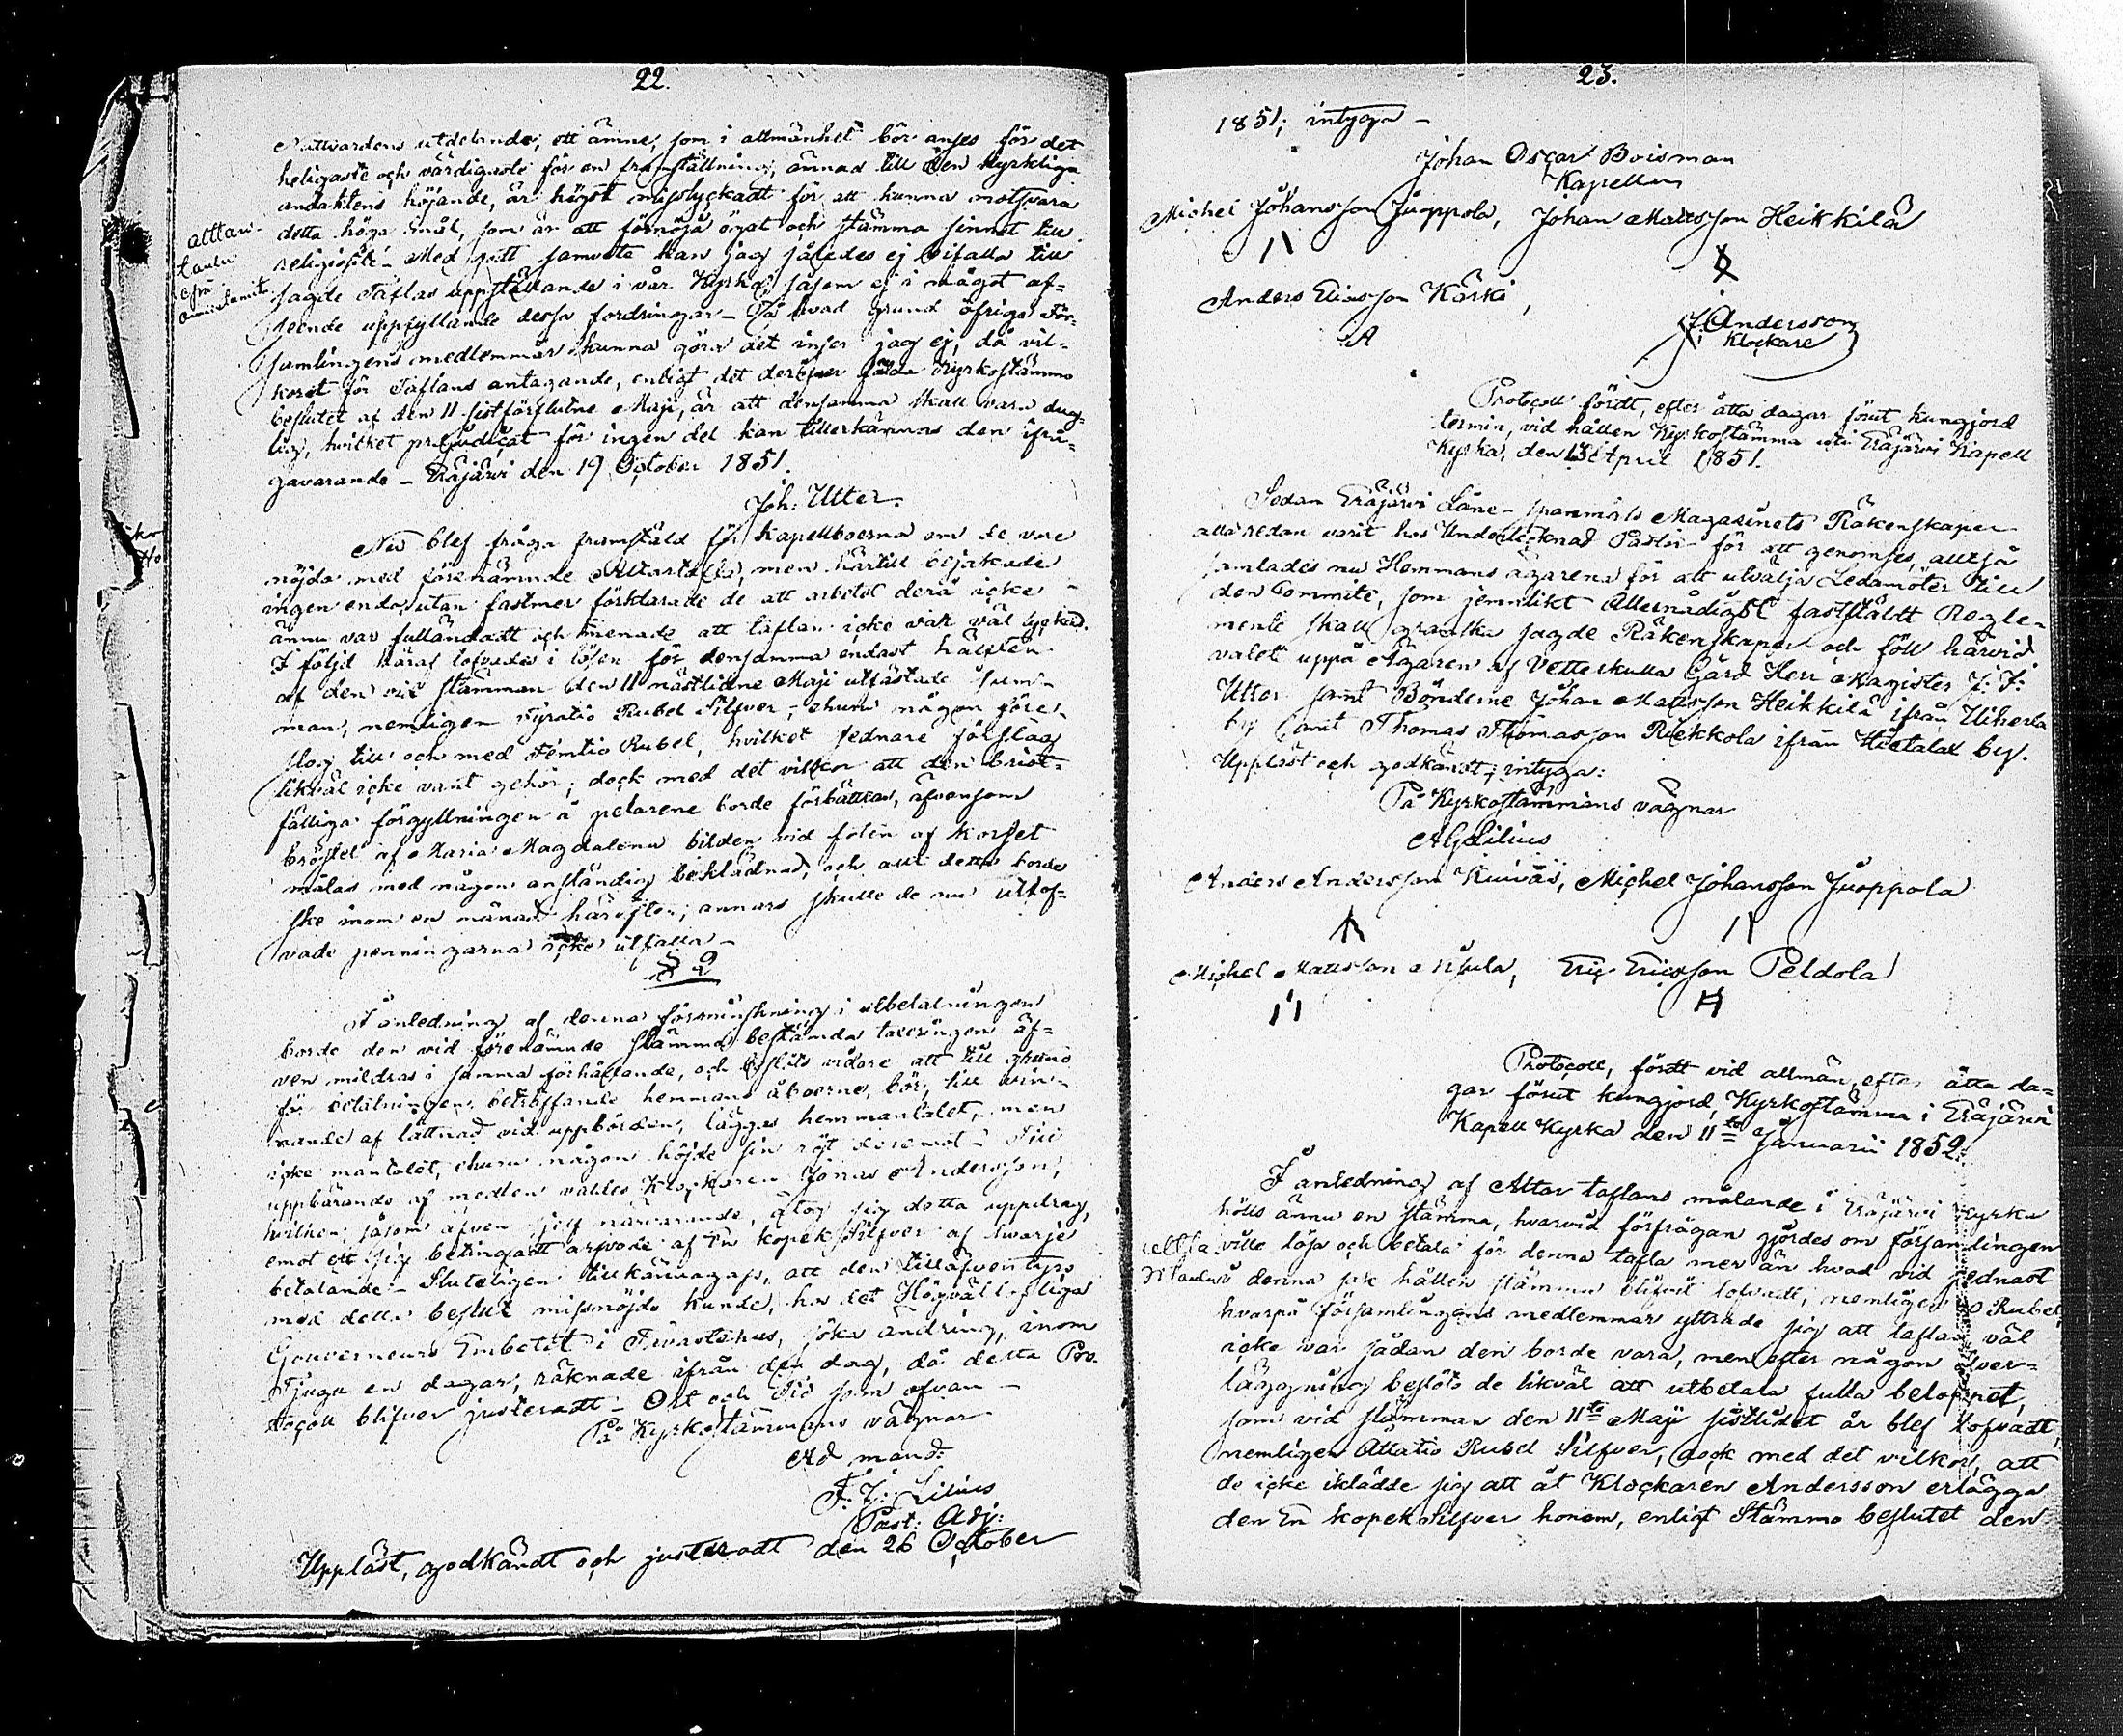 22.
Nattvardens utdelande, ett ämne, som i allmänhet bör anses för det
heligaste och värdigaste för en framställning, ämnad till den kyrkliga
andaktens höjande, är högst misslyckadt för att kunna motsvara
detta höga mål, som är att förnöja ögat och stämma sinnet till
religiösité – Med godt samvete kan jag således ej bifalla till
sagde Taflas uppställande i vår Kyrka, såsom ej i något af-
seende uppfyllande dessa fordringar – På hvad grund öfriga För-
samlingens medlemmar kunna göra det inser jag ej, då vil-
koret för Taflans antagande, enligt det deröfver fälda Kyrkostämmo
beslutet af den 11 sistförflutne Maji, är att densamma skall vara dug-
lig, hvilket prejudicat för ingen del kan tillerkännas den ifrå-
gavarande – Eräjärvi den 19 October 1851.
Joh: Utter.
alttari
taulu
Nu blef fråga framstäld för Kapellboerna om de vore
nöjda med förenämnde Altartafla, men härtill bejakade
ingen enda, utan fastmer förklarade de att arbetet derå icke
ännu var fulländadt och menade att taflan icke var väl lyckad.
I följd häraf lofvades i lösen för densamma endast hälften
af den vid stämman den 11 nästlidne Maji utfästade sum-
man, nemligen Fyratio Rubel Silfver, ehuru någon före-
slog till och med Femtio Rubel, hvilket sednare förslag
likväl icke vant gehör; dock med det vilkor att den brist-
fälliga förgyllningen å pelarene borde förbättras, äfvensom
bröstet af Maria Magdalena bilden vid foten af korset
målas med någon anständig beklädnad, och allt detta borde
ske inom en månad härefter, annars skulle de nu utlof-
vade penningarna icke utfalla –
§ 2
I anledning af denna förminskning i utbetalningen
borde den vid förenämnde stämma bestämda taxeringen äf-
ven mildras i samma förhållande, och beslöts vidare att till grund
för betalningen, beträffande hemmans åboerne, bör, till vin-
nande af lättnad vid uppbörden, läggas hemmantalet, men
icke mantalet, ehuru någon höjde sin röst deremot – Till
uppbärande af medlen valdes Klockaren Jonas Andersson,
hvilken, såsom äfven sjelf närvarande, åtog sig detta uppdrag,
emot ett sig betingadt arfvode af En kopek Silfver af hvarje
betalande – Sluteligen tillkännagafs, att den tilläfventyrs
med detta beslut missnöjde kunde, hos det Högvällofliga
Gouverneurs Embetet i Tavastehus, söka ändring, inom
Tjugu en dagar, räknade ifrån den dag, då detta Pro-
tocoll blifver justeradt – Ort och Tid som ofvan –
På Kyrkostämmans vägnar
Ad mand:
F. J. Lilius
Past: Adj:
Uppläst, godkändt och justeradt den 26 October
23.
1851, intyga –
Johan Oscar Boisman
Kapellan
Michel Johansson Juoppola, Johan Mattsson Heikkilä
Anders Ericsson Kärki,
J. Andersson
Klockare
Protocoll fördt, efter åtta dagar förut kungjord
termin, vid hållen Kyrkostämma uti Eräjärvi Kapell
Kyrka, den 13 April 1851.
Sedan Eräjärvi Låne-spanmåls Magasinets Räkenskaper
allaredan varit hos Undertecknad Pastor för att genomses, alltså
samlades nu Hemmans ägarena för att utvälja Ledamöter till
den Committé, som jemnlikt Allernådigst fastställdt Regle-
mente skall granska sagde Räkenskaper och föll härvid
valet uppå Ägaren af Vetterkulla Gård Herr Magister J. J.
Utter samt Bönderne Johan Mattsson Heikkilä ifrån Uiherla
by samt Thomas Thomasson Riekkola ifrån Hietalax by.
Uppläst och godkändt, intyga:
På Kyrkostämmans vägnar
A G Lilius
Anders Andersson Kuivas, Michel Johansson Juoppola
Michel Mattsson Uotila, Eric Ericsson Peldola
Protocoll, fördt vid allmän, efter åtta da-
gar förut kungjord, Kyrkostämma i Eräjärvi
Kapell Kyrka den 11te Januarii 1852.
I anledning af Altar taflans målande i Eräjärvi Kyrka
hölls ännu en stämma, hvarvid förfrågan gjordes om församlingen
ville lösa och betala för denna tafla mer än hvad vid sednast
denna sak hållen stämma blifvit lofvadt, nemligen 40 Rubel,
hvarpå församlingens medlemmar yttrade sig att taflan väl
icke var sådan den borde vara, men efter någon öfver-
läggning beslöts de likväl att utbetala fulla beloppet,
som vid stämman den 11te Maji sistlidet år blef lofvadt,
nemligen Åttatio Rubel Silfver, dock med det vilkor, att
de icke iklädde sig att åt Klockaren Andersson erlägga
den En kopek Silfver honom, enligt Stämmo beslutet den